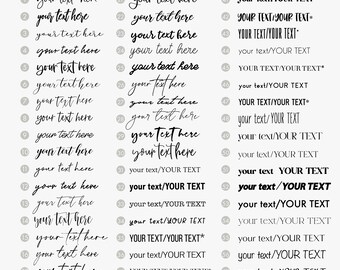 your text here
your text here
your text here
your text here
your text here
your text here
your text here
your text here
your text here
your text here
your text here
your text here
your text here
your text here
your text here
your text here
your text here
your text here
your text here
your text here
your text here
your text here
your text here
your text here
your text here
your text here
your text here
your text/YOUR TEXT
your text/YOUR TEXT
your text/YOUR TEXT
your text/YOUR TEXT
YOUR TEXT/YOUR TEXT*
your text/YOUR TEXT
YOUR TEXT/YOUR TEXT*
your text/YOUR TEXT
YOUR TEXT/YOUR TEXT*
YOUR TEXT/YOUR TEXT*
your text/YOUR TEXT
YOUR TEXT/YOUR TEXT*
your text/YOUR TEXT
YOUR TEXT/YOUR TEXT*
your text/YOUR TEXT
your text/YOUR TEXT
your text/YOUR TEXT
your text/YOUR TEXT
your text/YOUR TEXT
your text/YOUR TEXT
your text/YOUR TEXT
your text/YOUR TEXT
your text/YOUR TEXT
your text/YOUR TEXT